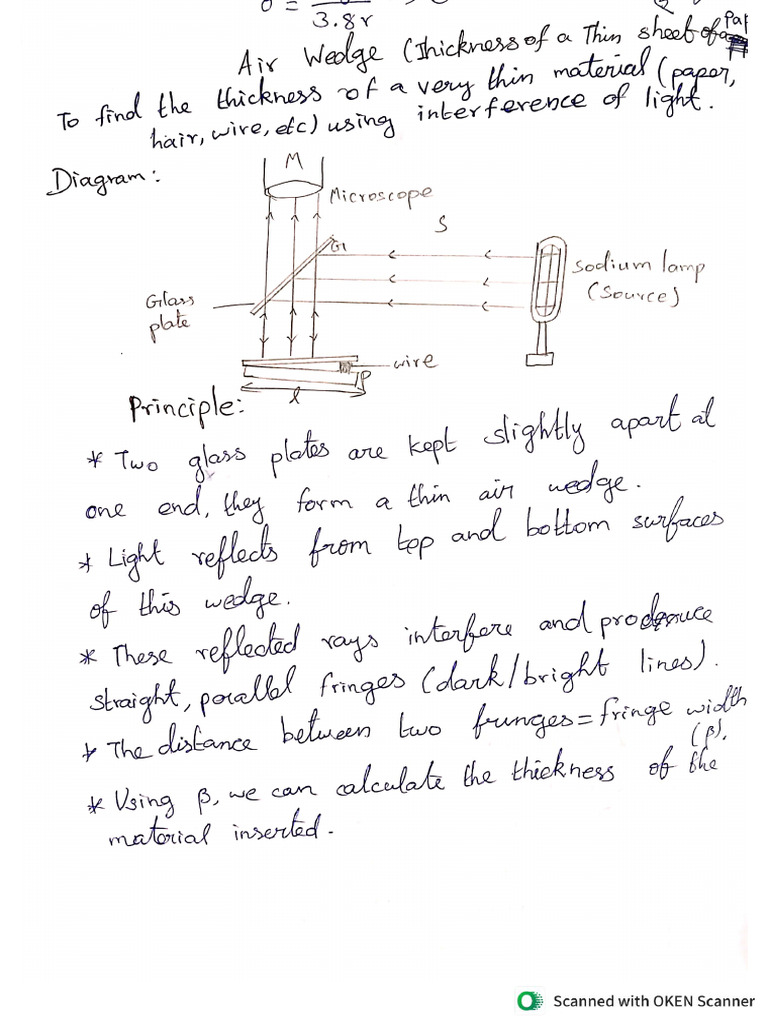 σ = 
3.8r
Air Wedge (Thickness of a Thin sheet of Pap
To find the thickness of a very thin material (paper,
hair, wire, etc) using interference of light.
Diagram:
M
Microscope
S
G1
Sodium lamp
(Source)
Glass
plate
wire
P
l
Principle:
* Two glass plates are kept slightly apart at
one end, they form a thin air wedge.
* Light reflects from top and bottom surfaces
of this wedge.
* These reflected rays interfere and produce
straight, parallel fringes (dark/bright lines).
* The distance between two frunges = fringe width
(β).
* Using β, we can calculate the thickness of the
material inserted.
Scanned with OKEN Scanner